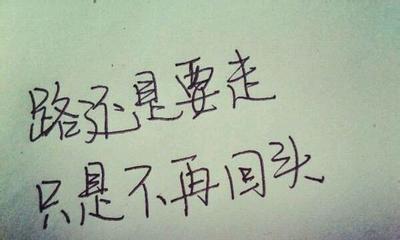 路还是要走
只是不再回头